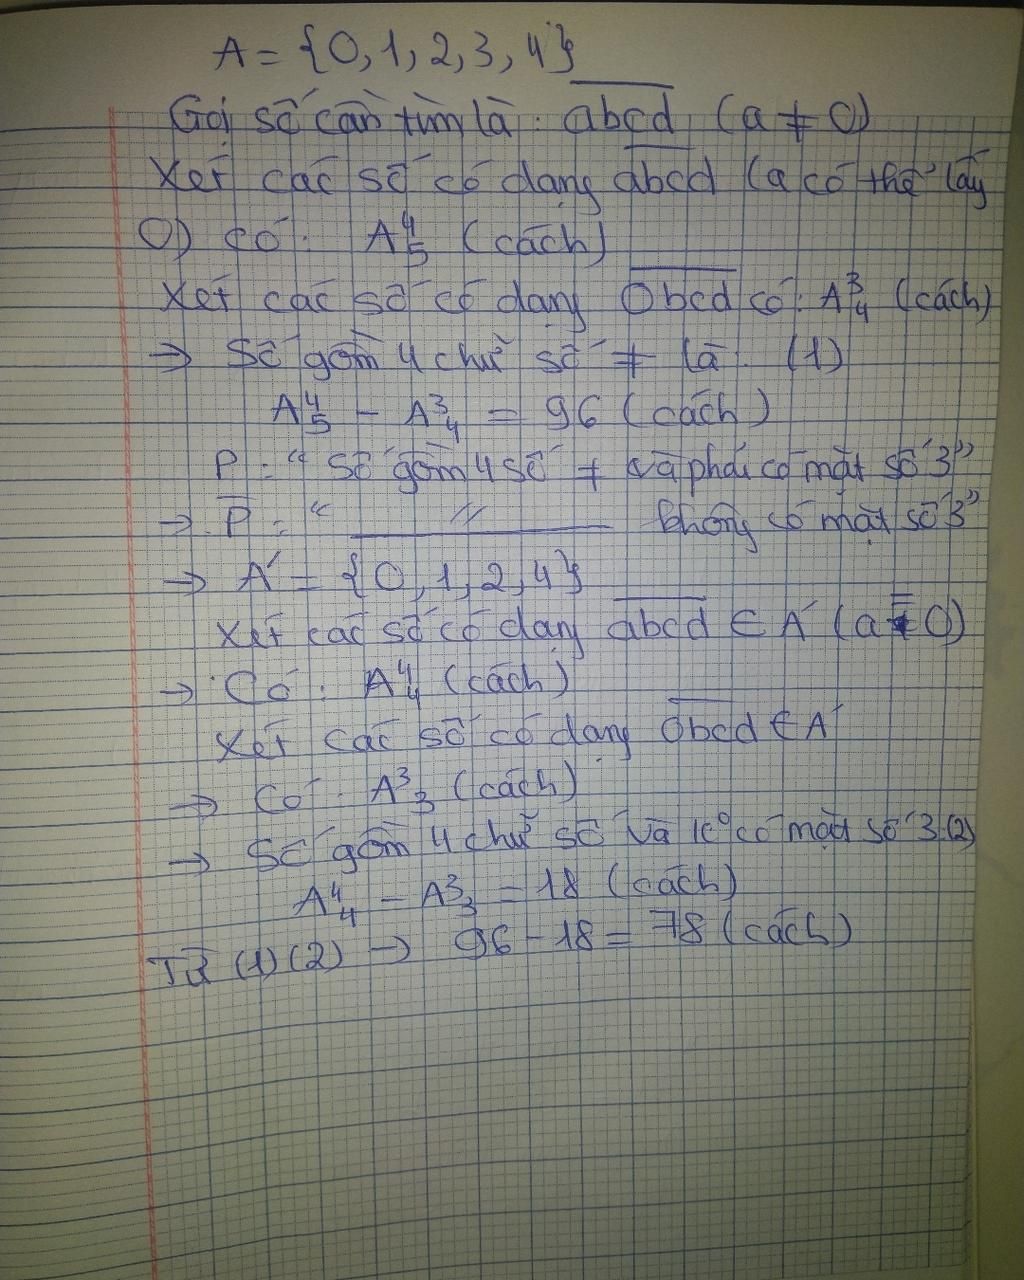 A = {0, 1, 2, 3, 4}
Gọi số cần tìm là: abcd (a ≠ 0)
Xét các số có dạng abcd (a có thể lấy
0) có: A⁴₅ (cách)
Xét các số có dạng 0bcd có: A³₄ (cách)
→ Số gồm 4 chữ số ≠ là: (1)
A⁴₅ - A³₄ = 96 (cách)
P: "Số gồm 4 số ≠ và phải có mặt số 3"
→ P̅: " // không có mặt số 3"
→ A' = {0, 1, 2, 4}
Xét các số có dạng abcd ∈ A' (a = 0)
→ Có: A⁴₄ (cách)
Xét các số có dạng 0bcd ∈ A'
→ Có: A³₃ (cách)
→ Số gồm 4 chữ số và k° có mặt số 3:(2)
A⁴₄ - A³₃ = 18 (cách)
Từ (1)(2) → 96 - 18 = 78 (cách)